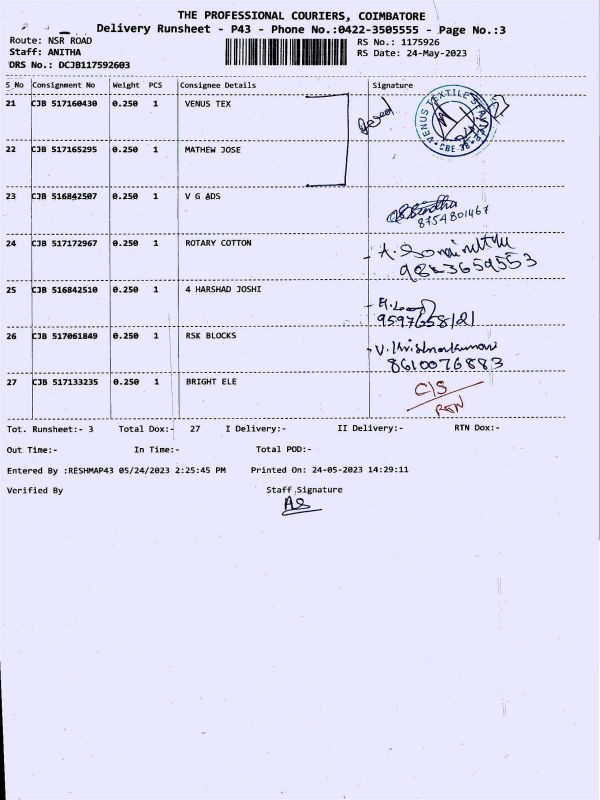 THE PROFESSIONAL COURIERS, COIMBATORE
Delivery Runsheet - P43 - Phone No.:0422-3505555 - Page No.:3
Route: NSR ROAD RS No.: 1175926
Staff: ANITHA RS Date: 24-May-2023
DRS No.: DCJB117592603
S No Consignment No Weight PCS Consignee Details Signature
21 CJB 517160430 0.250 1 VENUS TEX
VENUS TEXTILE CBE-38
22 CJB 517165295 0.250 1 MATHEW JOSE
23 CJB 516842507 0.250 1 V G ADS
8754801467
24 CJB 517172967 0.250 1 ROTARY COTTON
25 CJB 516842510 0.250 1 4 HARSHAD JOSHI
9597658121
26 CJB 517061849 0.250 1 RSK BLOCKS
V. Krishnakumar
8610076883
27 CJB 517133235 0.250 1 BRIGHT ELE
C/S
RTN
Tot. Runsheet:- 3 Total Dox:- 27 I Delivery:- II Delivery:- RTN Dox:-
Out Time:- In Time:- Total POD:-
Entered By :RESHMAP43 05/24/2023 2:25:45 PM Printed On: 24-05-2023 14:29:11
Verified By Staff Signature